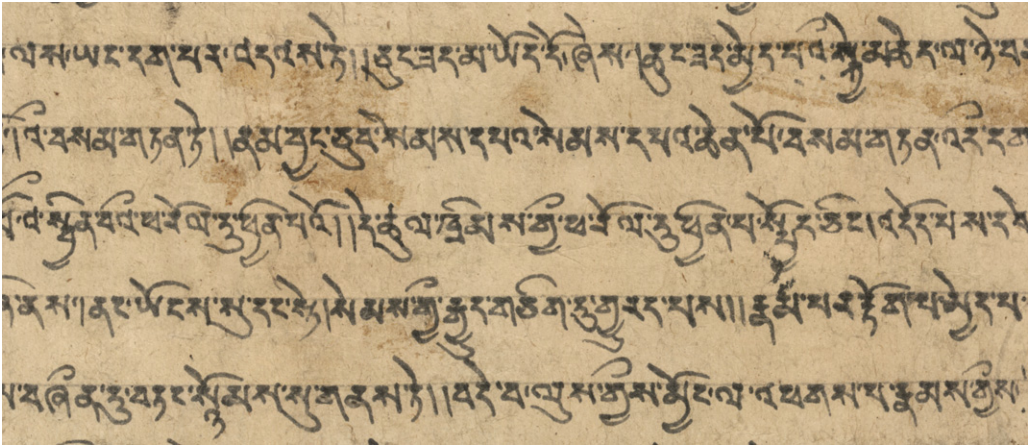 ལས་ཡང་དག་པར་འདས་ཏེ།།ཆུང་ཟད་མ་ཡེད་དེ་ཞེས།ཆུང་ཟད་མྱེད་པའི་སྐྱེ་མཆེད་ལ་ཉེ་བར
འི་བསམ་གཏན་ཏེ།།རྣམ་བྱང་ཆུབ་སེམས་དཔའ་སེམས་དཔའ་ཆེན་པོ་བསམ་གཏན་འདི་དག
པོ་འི་སྦྱིན་བའི་ཕ་རོལ་ཏུ་ཕྱིན་པའོ།།དེ་ཚུལ་ཁྲིམས་ཀྱི་ཕ་རོལ་ཏུ་ཕྱིན་པ་སྤྱོད་ཅིང།འདོད་པས་དབེ
ནས།ནང་ཡོངས་སུ་དང་སྟེ།སེམས་ཀྱི་རྒྱུད་གཅིག་ཏུ་གྱུརད་པས།།རྣམ་པར་རྟོག་པ་མྱེད་པ
བ་ཞིན་དུ་བཏང་སྙོམས་སུ་གནས་ཏེ།།བདེ་བ་ལུས་ཀྱིས་མྱོང་ལ་འཕགས་པ་རྣམས་ཀྱིས